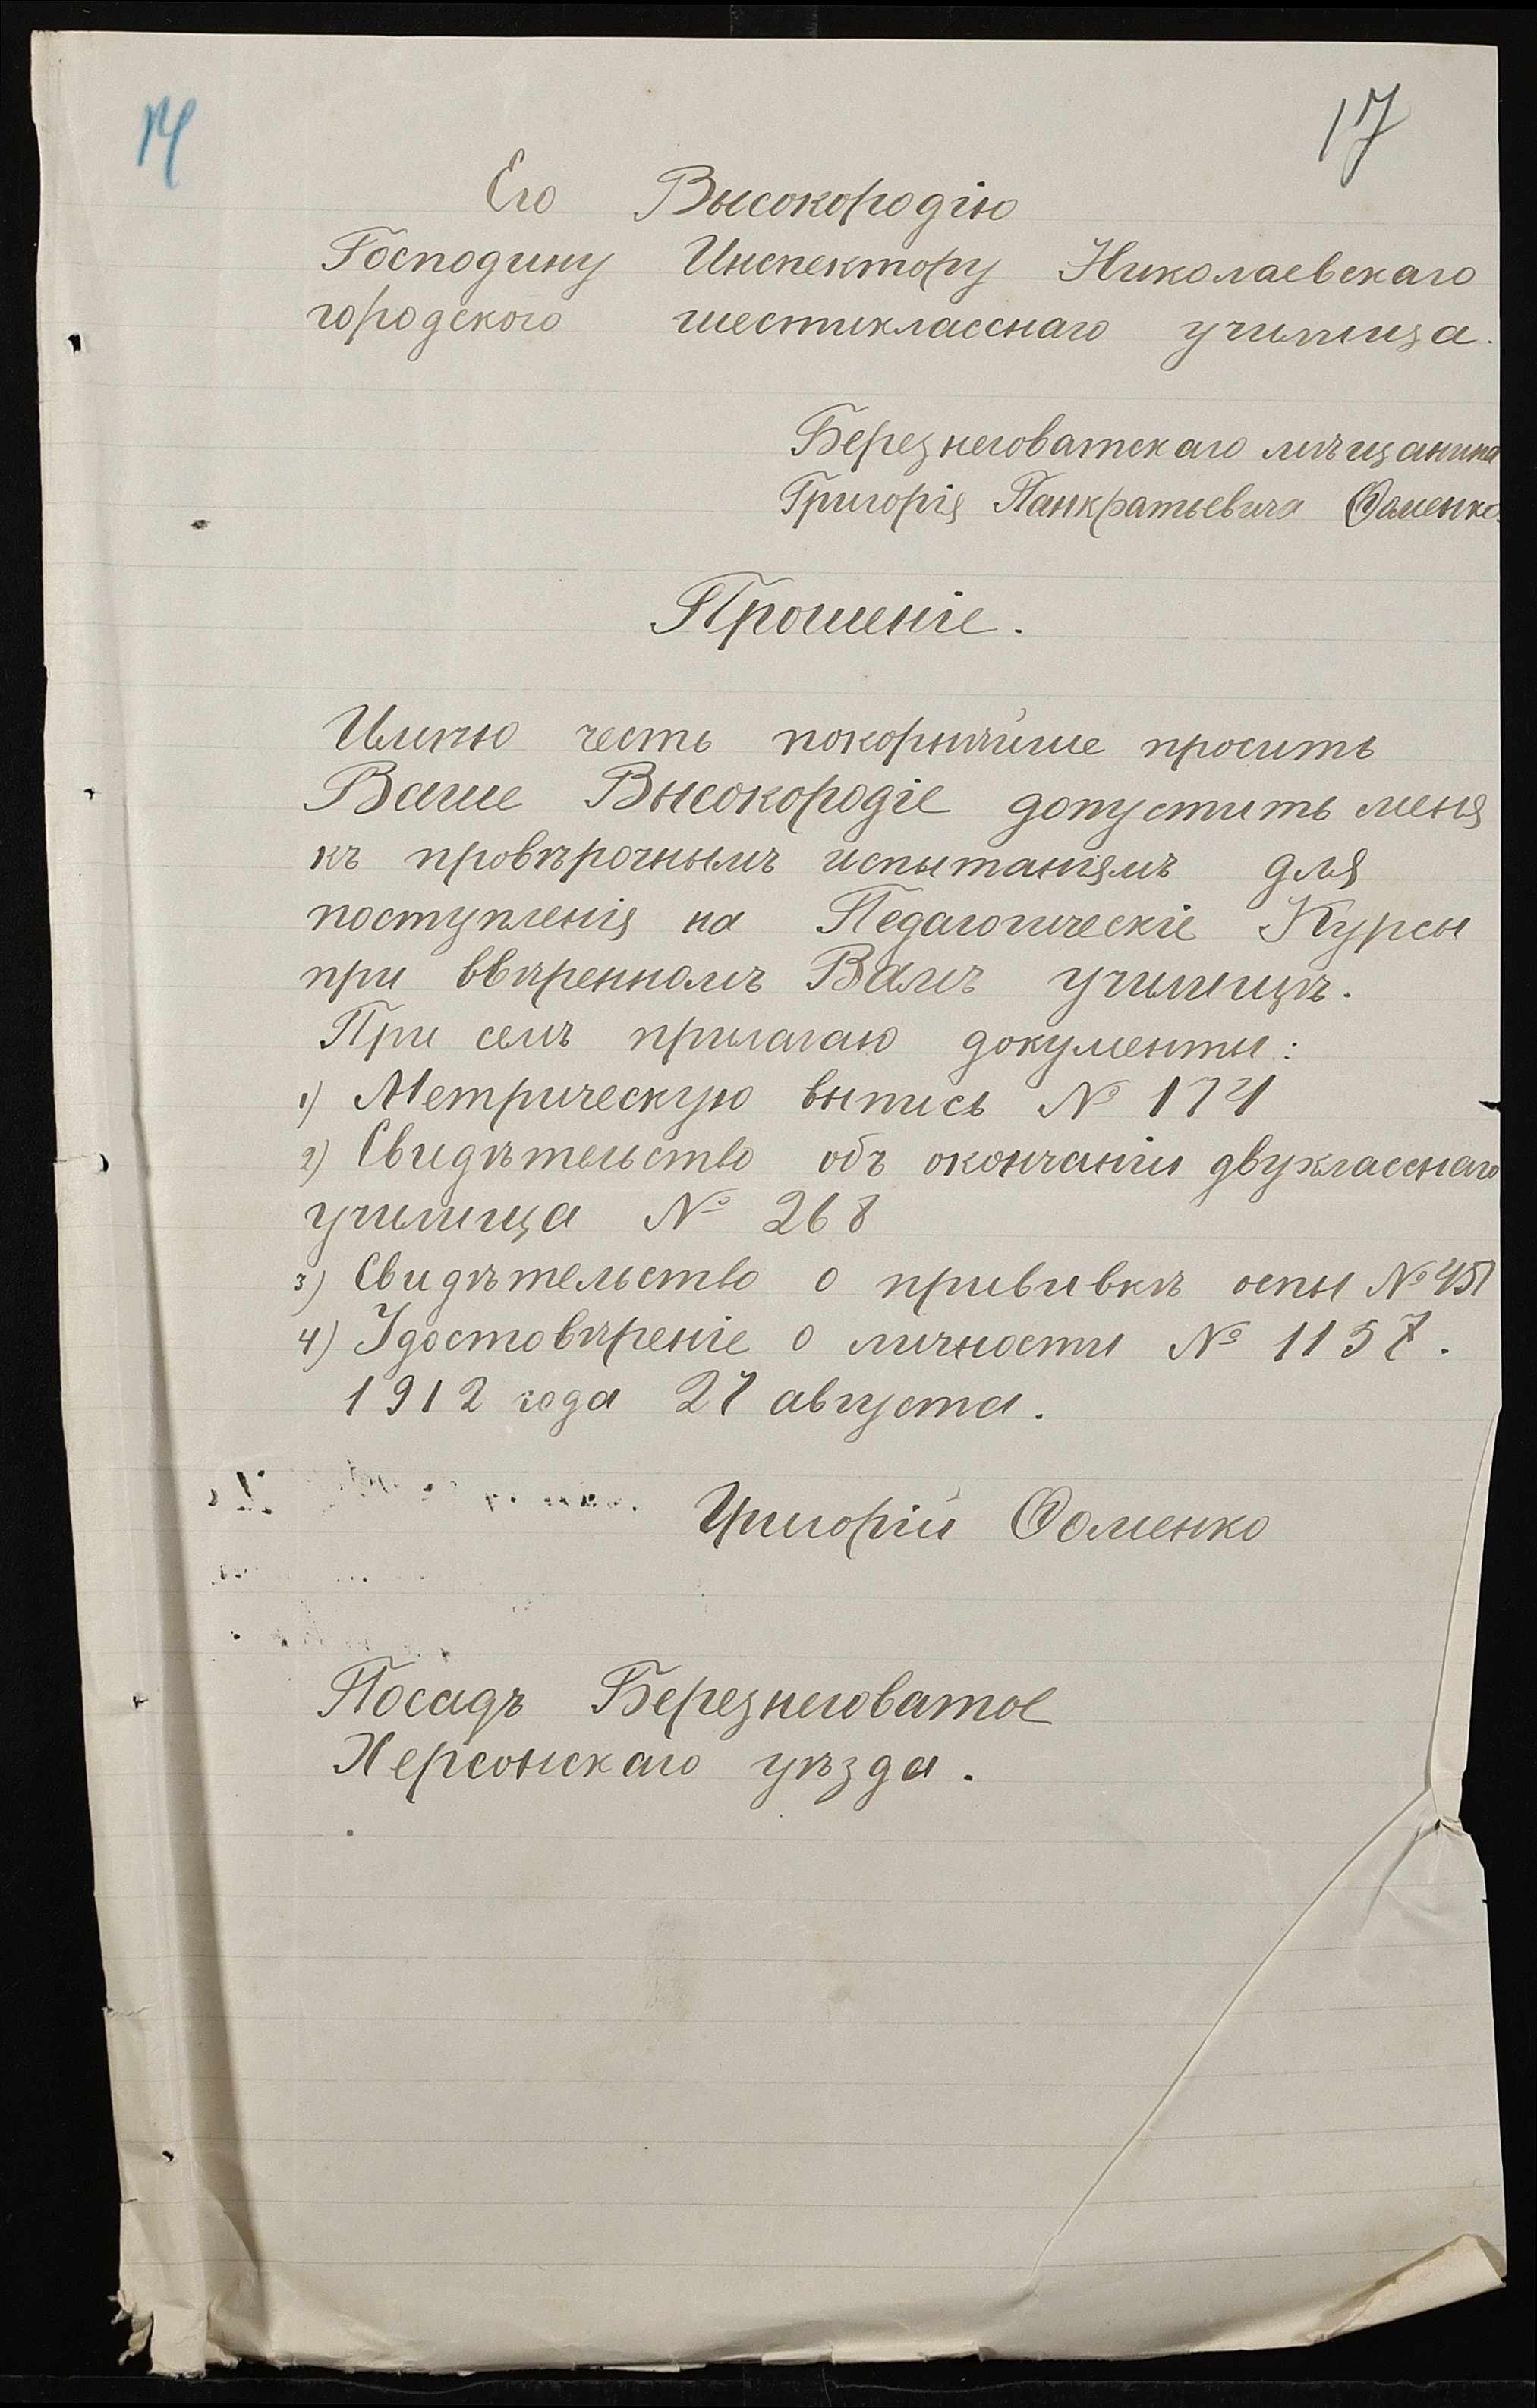 14 17
Его Высокородію
Господину Инспектору Николаевскаго
городского шестикласснаго училища.
Березнеговатскаго мѣщанина
Григорія Панкратьевича Фоменко.
Прошеніе.
Имѣю честь покорнѣйше просить
Ваше Высокородіе допустить меня
къ провѣрочнымъ испытаніямъ для
поступленія на Педагогическіе Курсы
при ввѣренномъ Вамъ училищѣ.
При семъ прилагаю документы:
1) Метрическую выпись № 174
2) Свидѣтельство объ окончаніи двухкласснаго
училища № 268
3) Свидѣтельство о прививкѣ оспы № 451
4) Удостовѣреніе о личности № 1157.
1912 года 27 августа.
Григорій Фоменко
Посадъ Березнеговатое
Херсонскаго уѣзда.